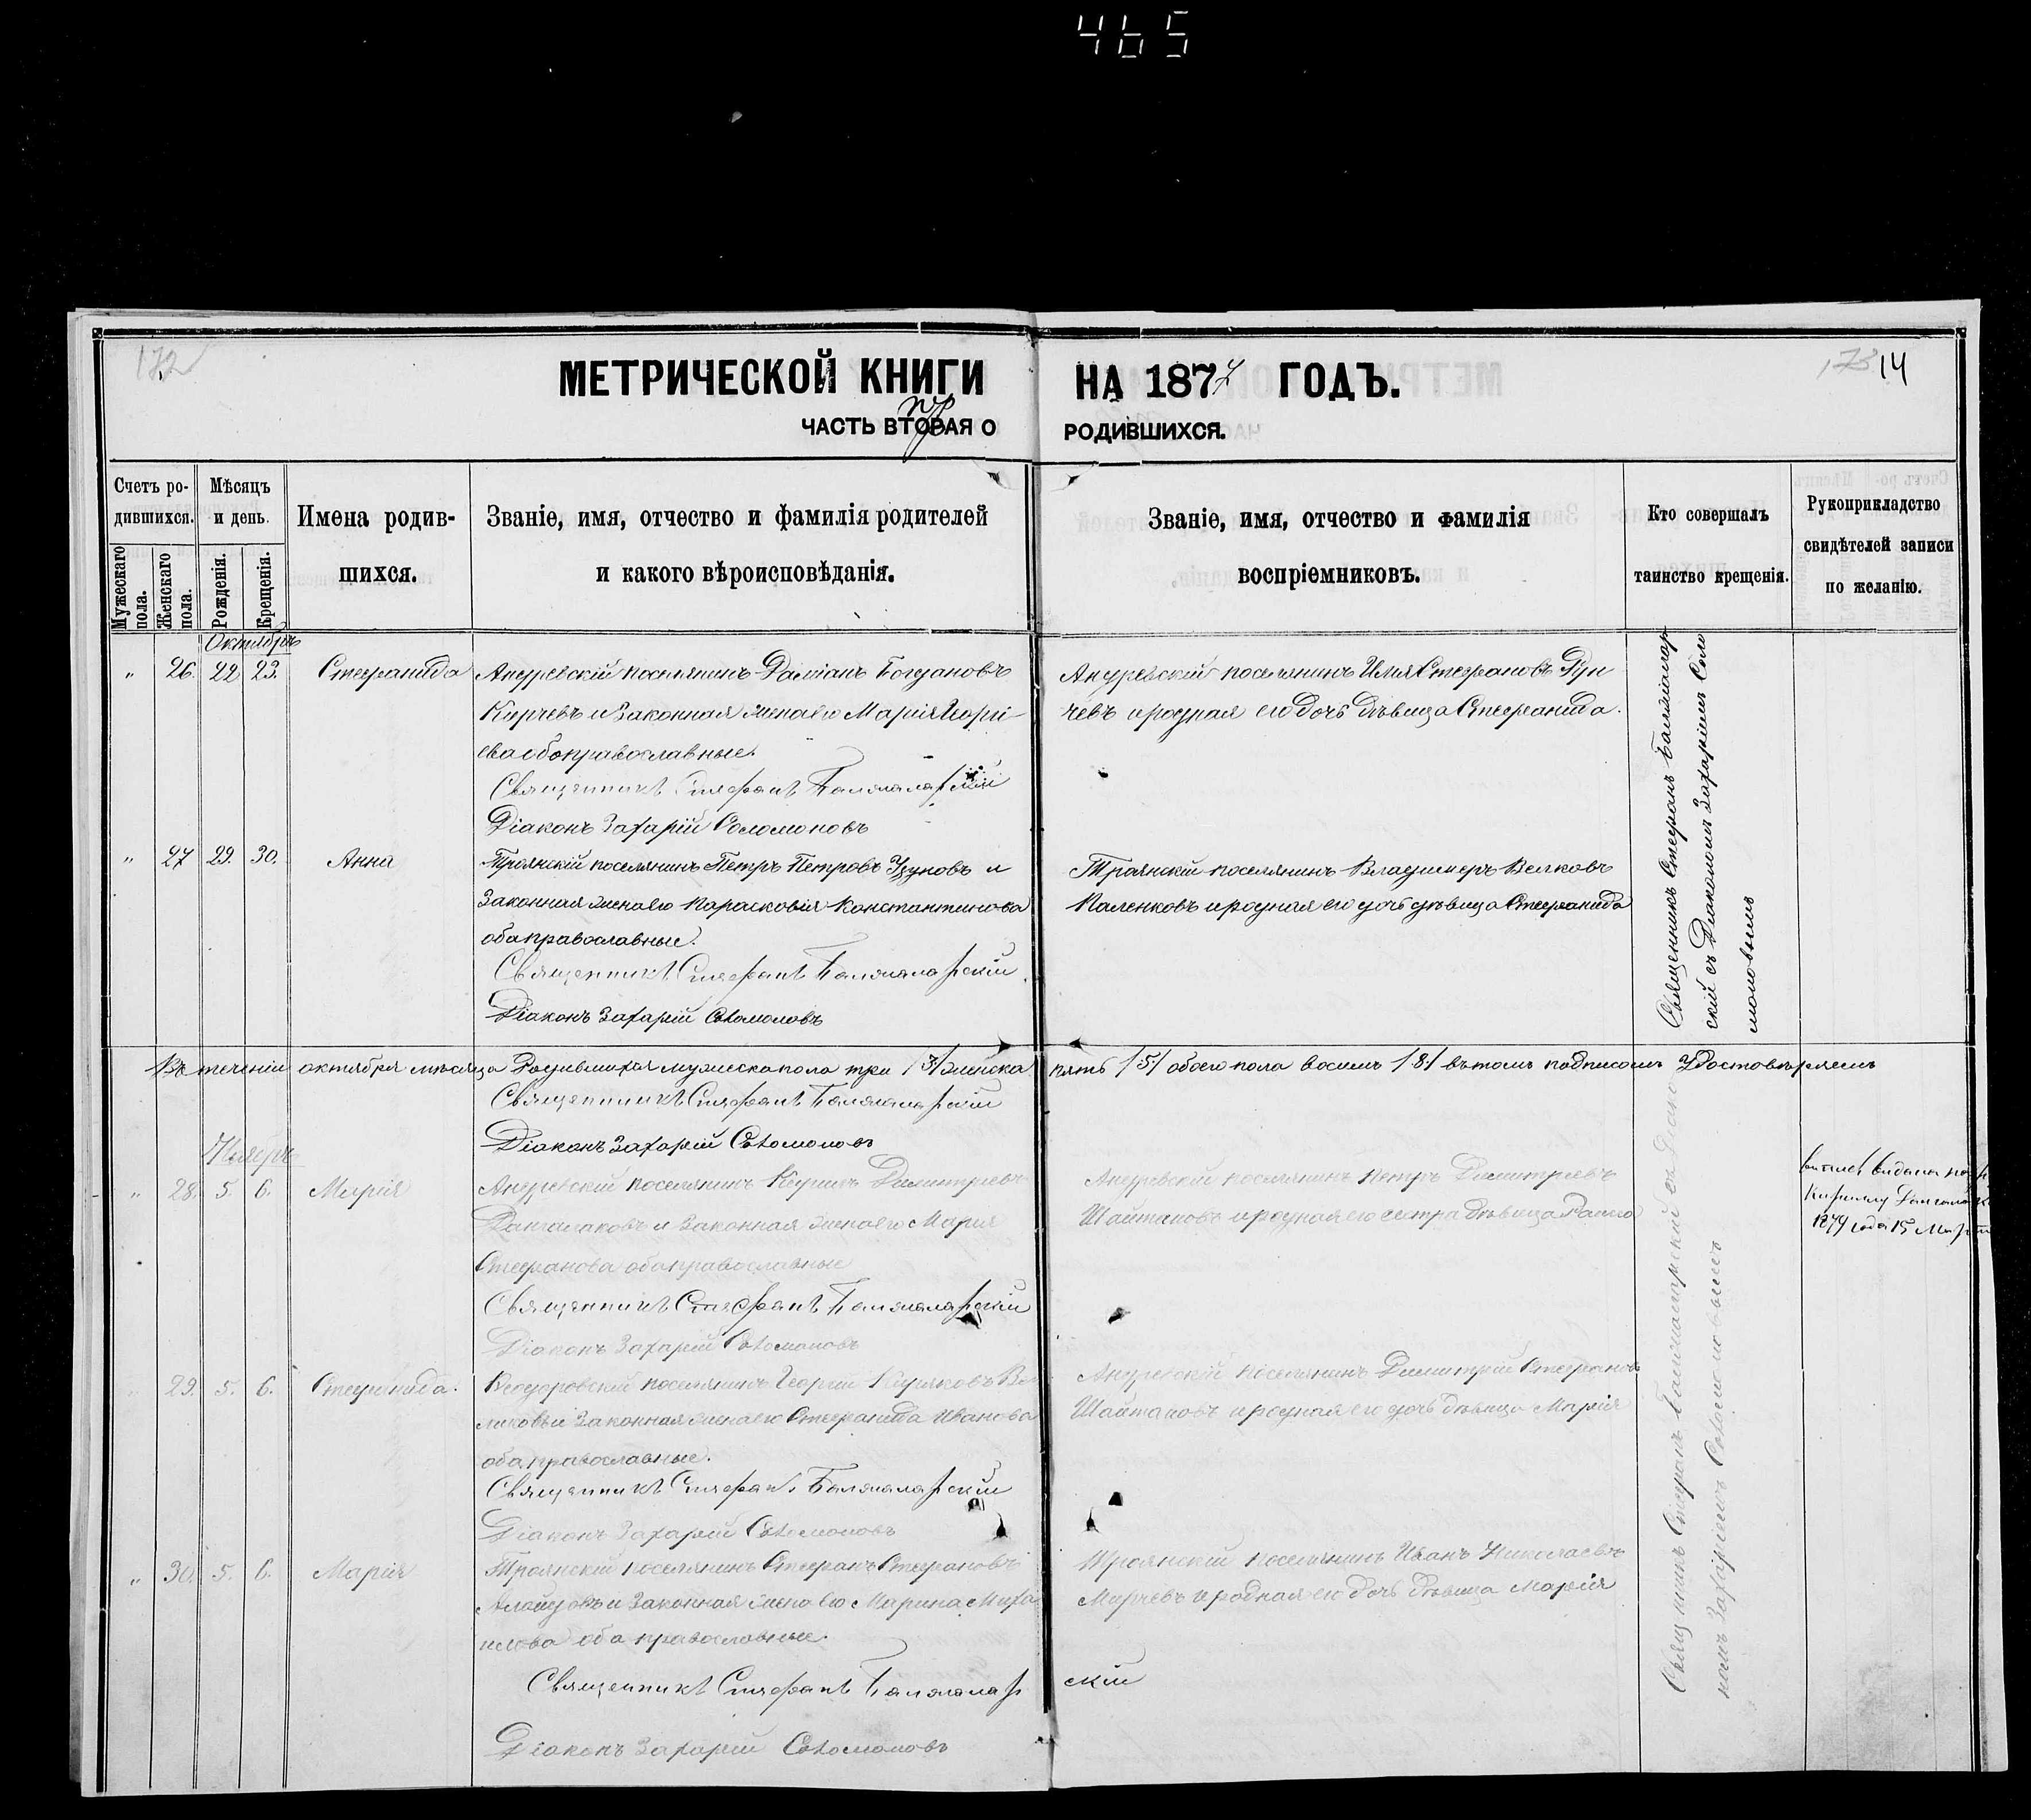 465
172
173 14
МЕТРИЧЕСКОЙ КНИГИ НА 1877 ГОДЪ.
ЧАСТЬ ВТОРАЯ О РОДИВШИХСЯ.
Счетъ ро-
дившихся.
Мужескаго
пола.
Женскаго
пола.
Мѣсяцъ
и день.
Рожденія.
Крещенія.
Имена родив-
шихся.
Званіе, имя, отчество и фамилія родителей
и какого вѣроисповѣданія.
Званіе, имя, отчество и фамилія
воспріемниковъ.
Кто совершалъ
таинство крещенія.
Рукоприкладство
свидѣтелей записи
по желанію.
Октябрь
" 26. 22 23. Стефанида
поселянинъ Даміанъ Богдановъ
Кирчевъ и законная жена его Марія Георгі-
ева оба православные.
Священникъ Стефанъ
Діаконъ Захарій Соломоновъ
поселянинъ Илія Стефановъ
чевъ и родная его дочь дѣвица Стефанида.
" 27 29. 30. Анна
Троянскій поселянинъ Петръ Петровъ Узуновъ и
Законная жена его Парасковія Константинова
оба православные.
Священникъ Стефанъ
Діаконъ Захарій Соломоновъ
Троянскій поселянинъ Владимеръ Велковъ
Паленковъ и родная его дочь дѣвица Стефанида
Священникъ Стефанъ
скій съ Діакономъ Захаріемъ Соло
моновымъ
Въ теченіи октября мѣсяца Родившихся мужеска пола три /3/ женска пять /5/ обоего пола восемь /8/ въ томъ подписомъ Удостовѣряемъ
Священникъ Стефанъ
Діаконъ Захарій Соломоновъ
Ноябрь
" 28. 5. 6. Марія
поселянинъ Димитріевъ
и Законная жена его Марія
Стефанова оба православные
Священникъ Стефанъ
Діаконъ Захарій Соломоновъ
поселянинъ Петръ Димитріевъ
Шайтановъ и родная его сестра дѣвица
выдана
Кириллу
года 15
29. 5. 6. Стефанида.
поселянинъ Георгій
и Законная жена его Стефанида Иванова
оба православные.
Священникъ Стефанъ
Діаконъ Захарій Соломоновъ
поселянинъ Димитрій Стефановъ
Шайтановъ и родная его дочь дѣвица Марія
" 30. 5. 6. Марія
Троянскій поселянинъ Стефанъ Стефановъ
и Законная жена его Марина Миха
илова оба православные.
Священникъ Стефанъ
скій
Діаконъ Захарій Соломоновъ
Троянскій поселянинъ Иванъ Николаевъ
Мирчевъ и родная его дочь дѣвица Марія
Священникъ Стефанъ
номъ Захаріемъ Соломоновымъ